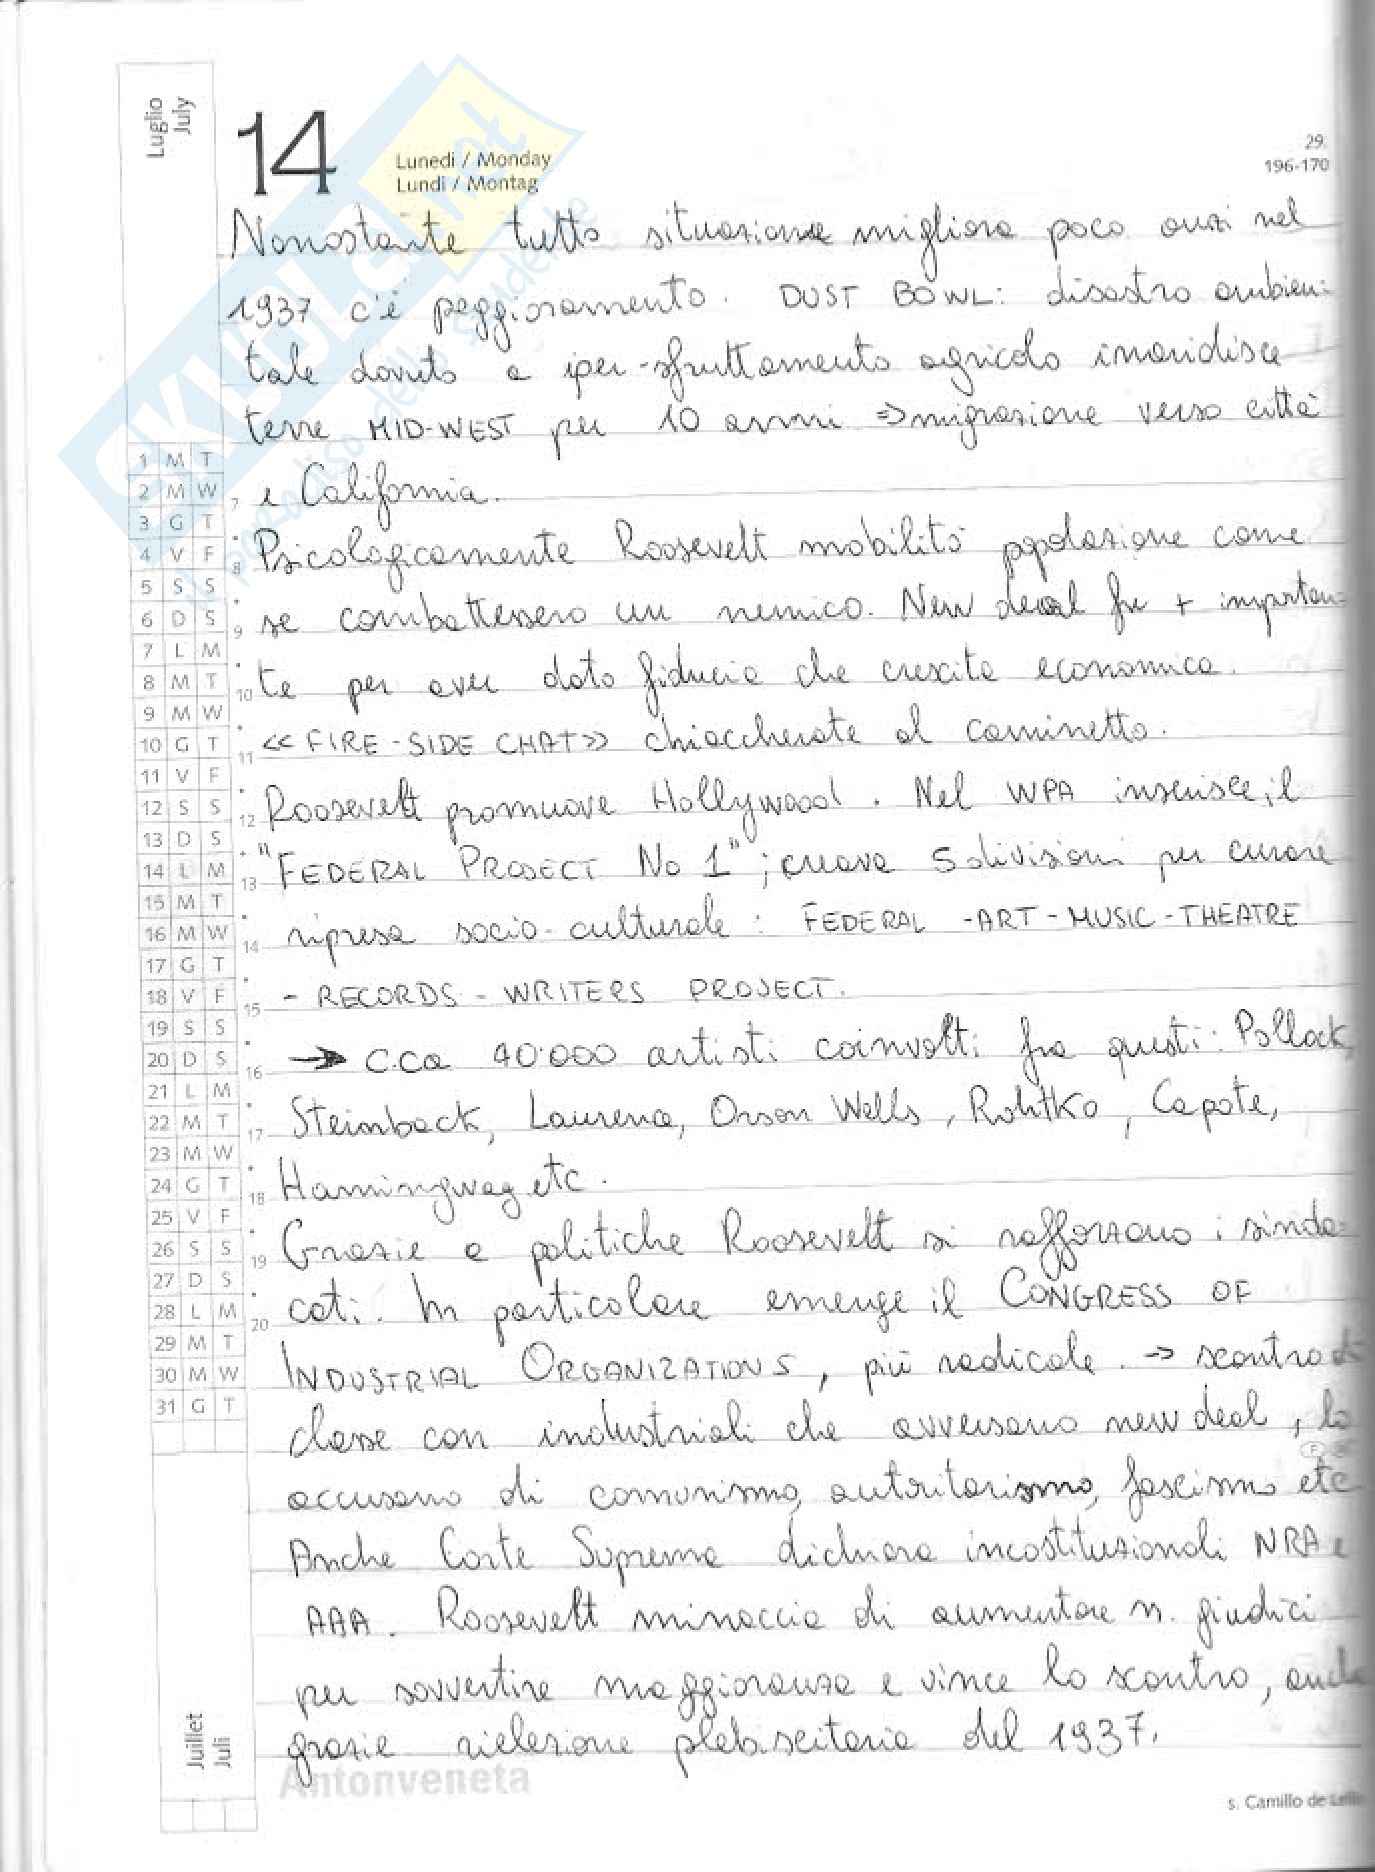 Luglio
July
14
Lunedi / Monday
Lundi / Montag
29.
196-170
SKUOLA.net
il paradiso dello studente
Nonostante tutto situazione migliora poco anzi nel
1937 c'è peggioramento. DUST BOWL: disastro ambien-
tale dovuto a iper-sfruttamento agricolo inaridisce
terre MID-WEST per 10 anni => migrazione verso città
e California.
Psicologicamente Roosevelt mobilitò popolazione come
se combattessero un nemico. New deal fu + importan-
te per aver dato fiducia che crescita economica.
<< FIRE-SIDE CHAT >> chiaccherate al caminetto.
Roosevelt promuove Hollywood. Nel WPA inserisce il
"FEDERAL PROJECT No 1"; creava 5 divisioni per curare
ripresa socio-culturale: FEDERAL -ART-MUSIC-THEATRE
- RECORDS - WRITERS PROJECT.
→ C.ca 40.000 artisti coinvolti fra questi: Pollock,
Steinback, Laurence, Orson Wells, Rohtko, Capote,
Hamingway etc.
Grazie a politiche Roosevelt si rafforzano i sinda-
cati. In particolare emerge il CONGRESS OF
INDUSTRIAL ORGANIZATIONS, più radicale. → scontro di
classe con industriali che avversano new deal, lo
accusano di comunismo, autoritarismo, fascismo etc
Anche Corte Suprema dichiara incostituzionali NRA e
AAA. Roosevelt minaccia di aumentare n. giudici
per sovvertire maggioranza e vince lo scontro, anche
grazie rielezione plebiscitaria del 1937.
1 M T
2 M W
3 G T
4 V F
5 S S
6 D S
7 L M
8 M T
9 M W
10 G T
11 V F
12 S S
13 D S
14 L M
15 M T
16 M W
17 G T
18 V F
19 S S
20 D S
21 L M
22 M T
23 M W
24 G T
25 V F
26 S S
27 D S
28 L M
29 M T
30 M W
31 G T
7
8
9
10
11
12
13
14
15
16
17
18
19
20
Juillet
Juli
Antonveneta
s. Camillo de Lellis